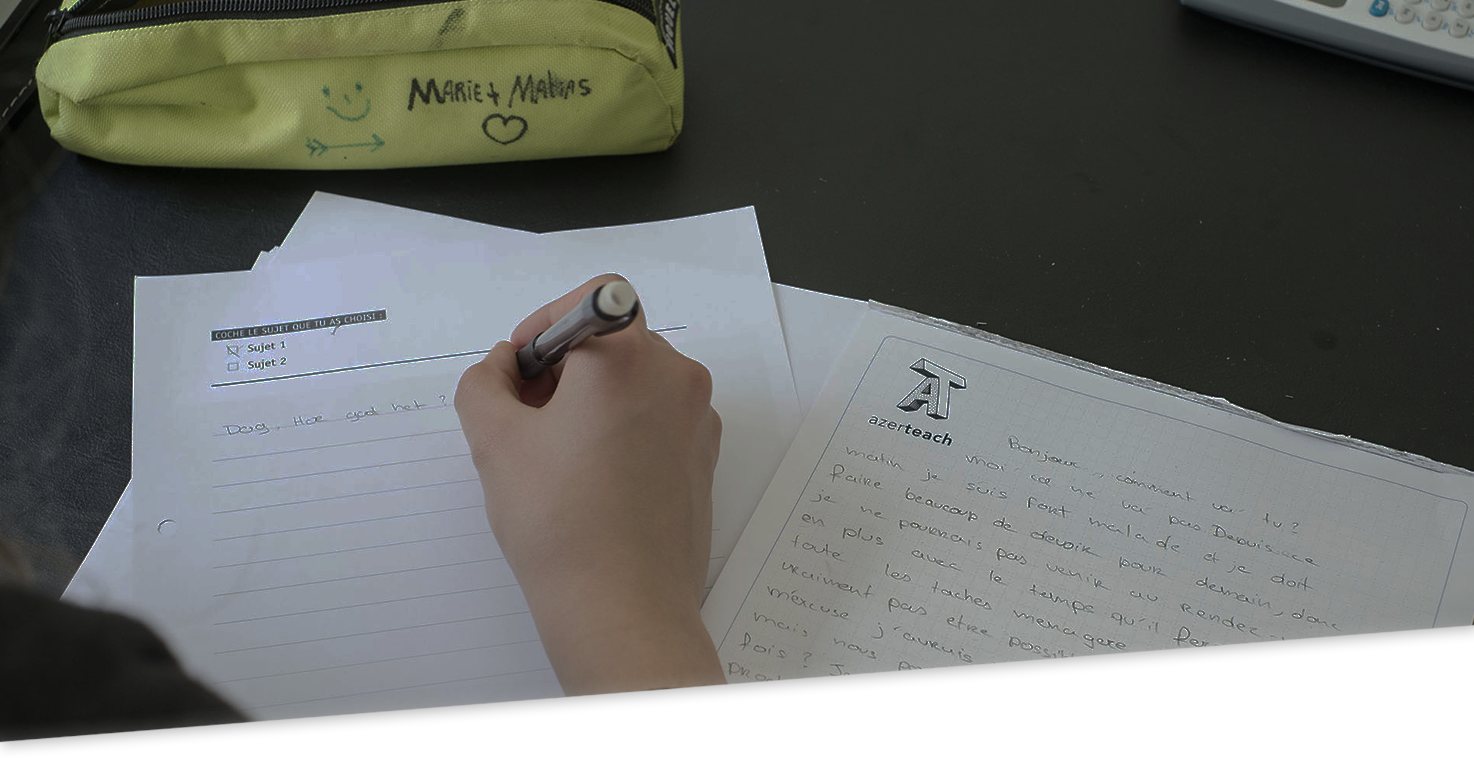 MARIE + MATHIAS
COCHE LE SUJET QUE TU AS CHOISI :
Sujet 1
Sujet 2
Dag, Hoe gaat het ?
AT
azerteach
Bonjour, comment vas tu ?
moi ça ne va pas. Depuis ce
matin je suis fort malade et je doit
faire beaucoup de devoir pour demain, donc
je ne pourrais pas venir au rendez-
en plus avec le temps qu'il fer
toute les taches menagere
vraiment pas etre possi
m'excuse j'aurais
mais nous
fois ?